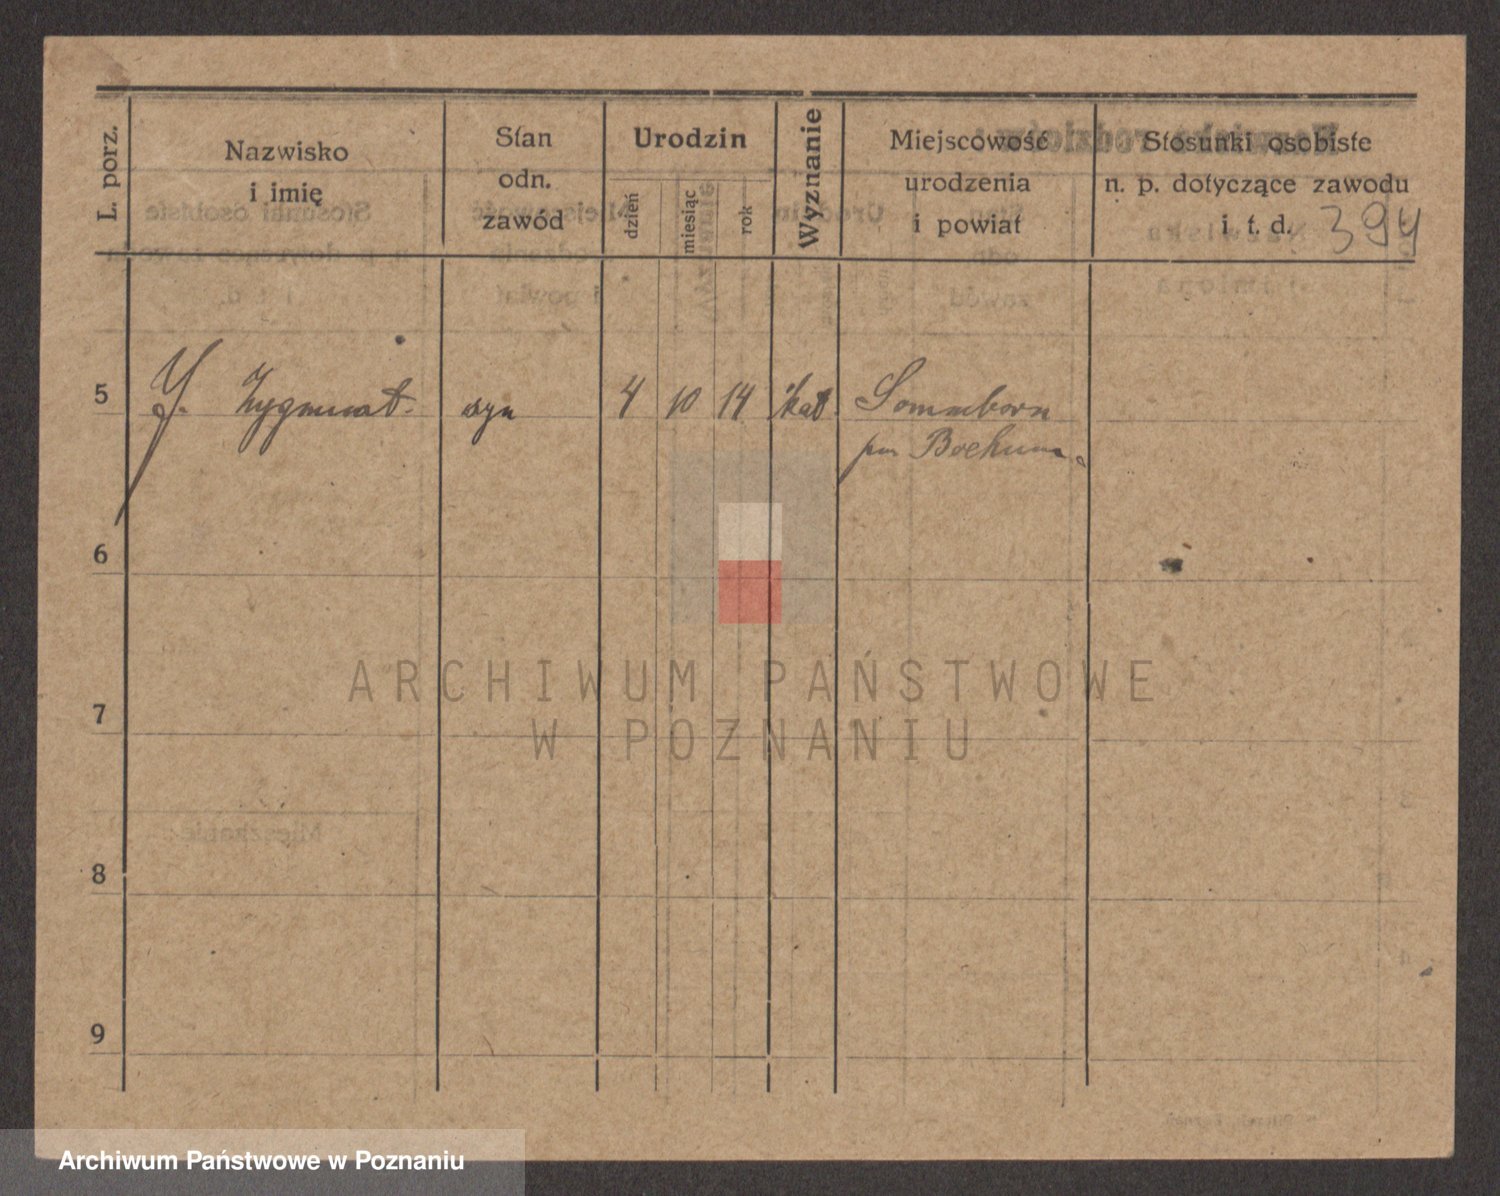 L. porz.
Nazwisko
i imię
Stan
odn.
zawód
Urodzin
dzień
miesiąc
rok
Wyznanie
Miejscowość
urodzenia
i powiat
Stosunki osobiste
n. p. dotyczące zawodu
i t. d.
394
5 Zygmunt syn 4 10 14 kat Sommborn
Bochum
6
7
8
9
ARCHIWUM PAŃSTWOWE
W POZNANIU
Archiwum Państwowe w Poznaniu